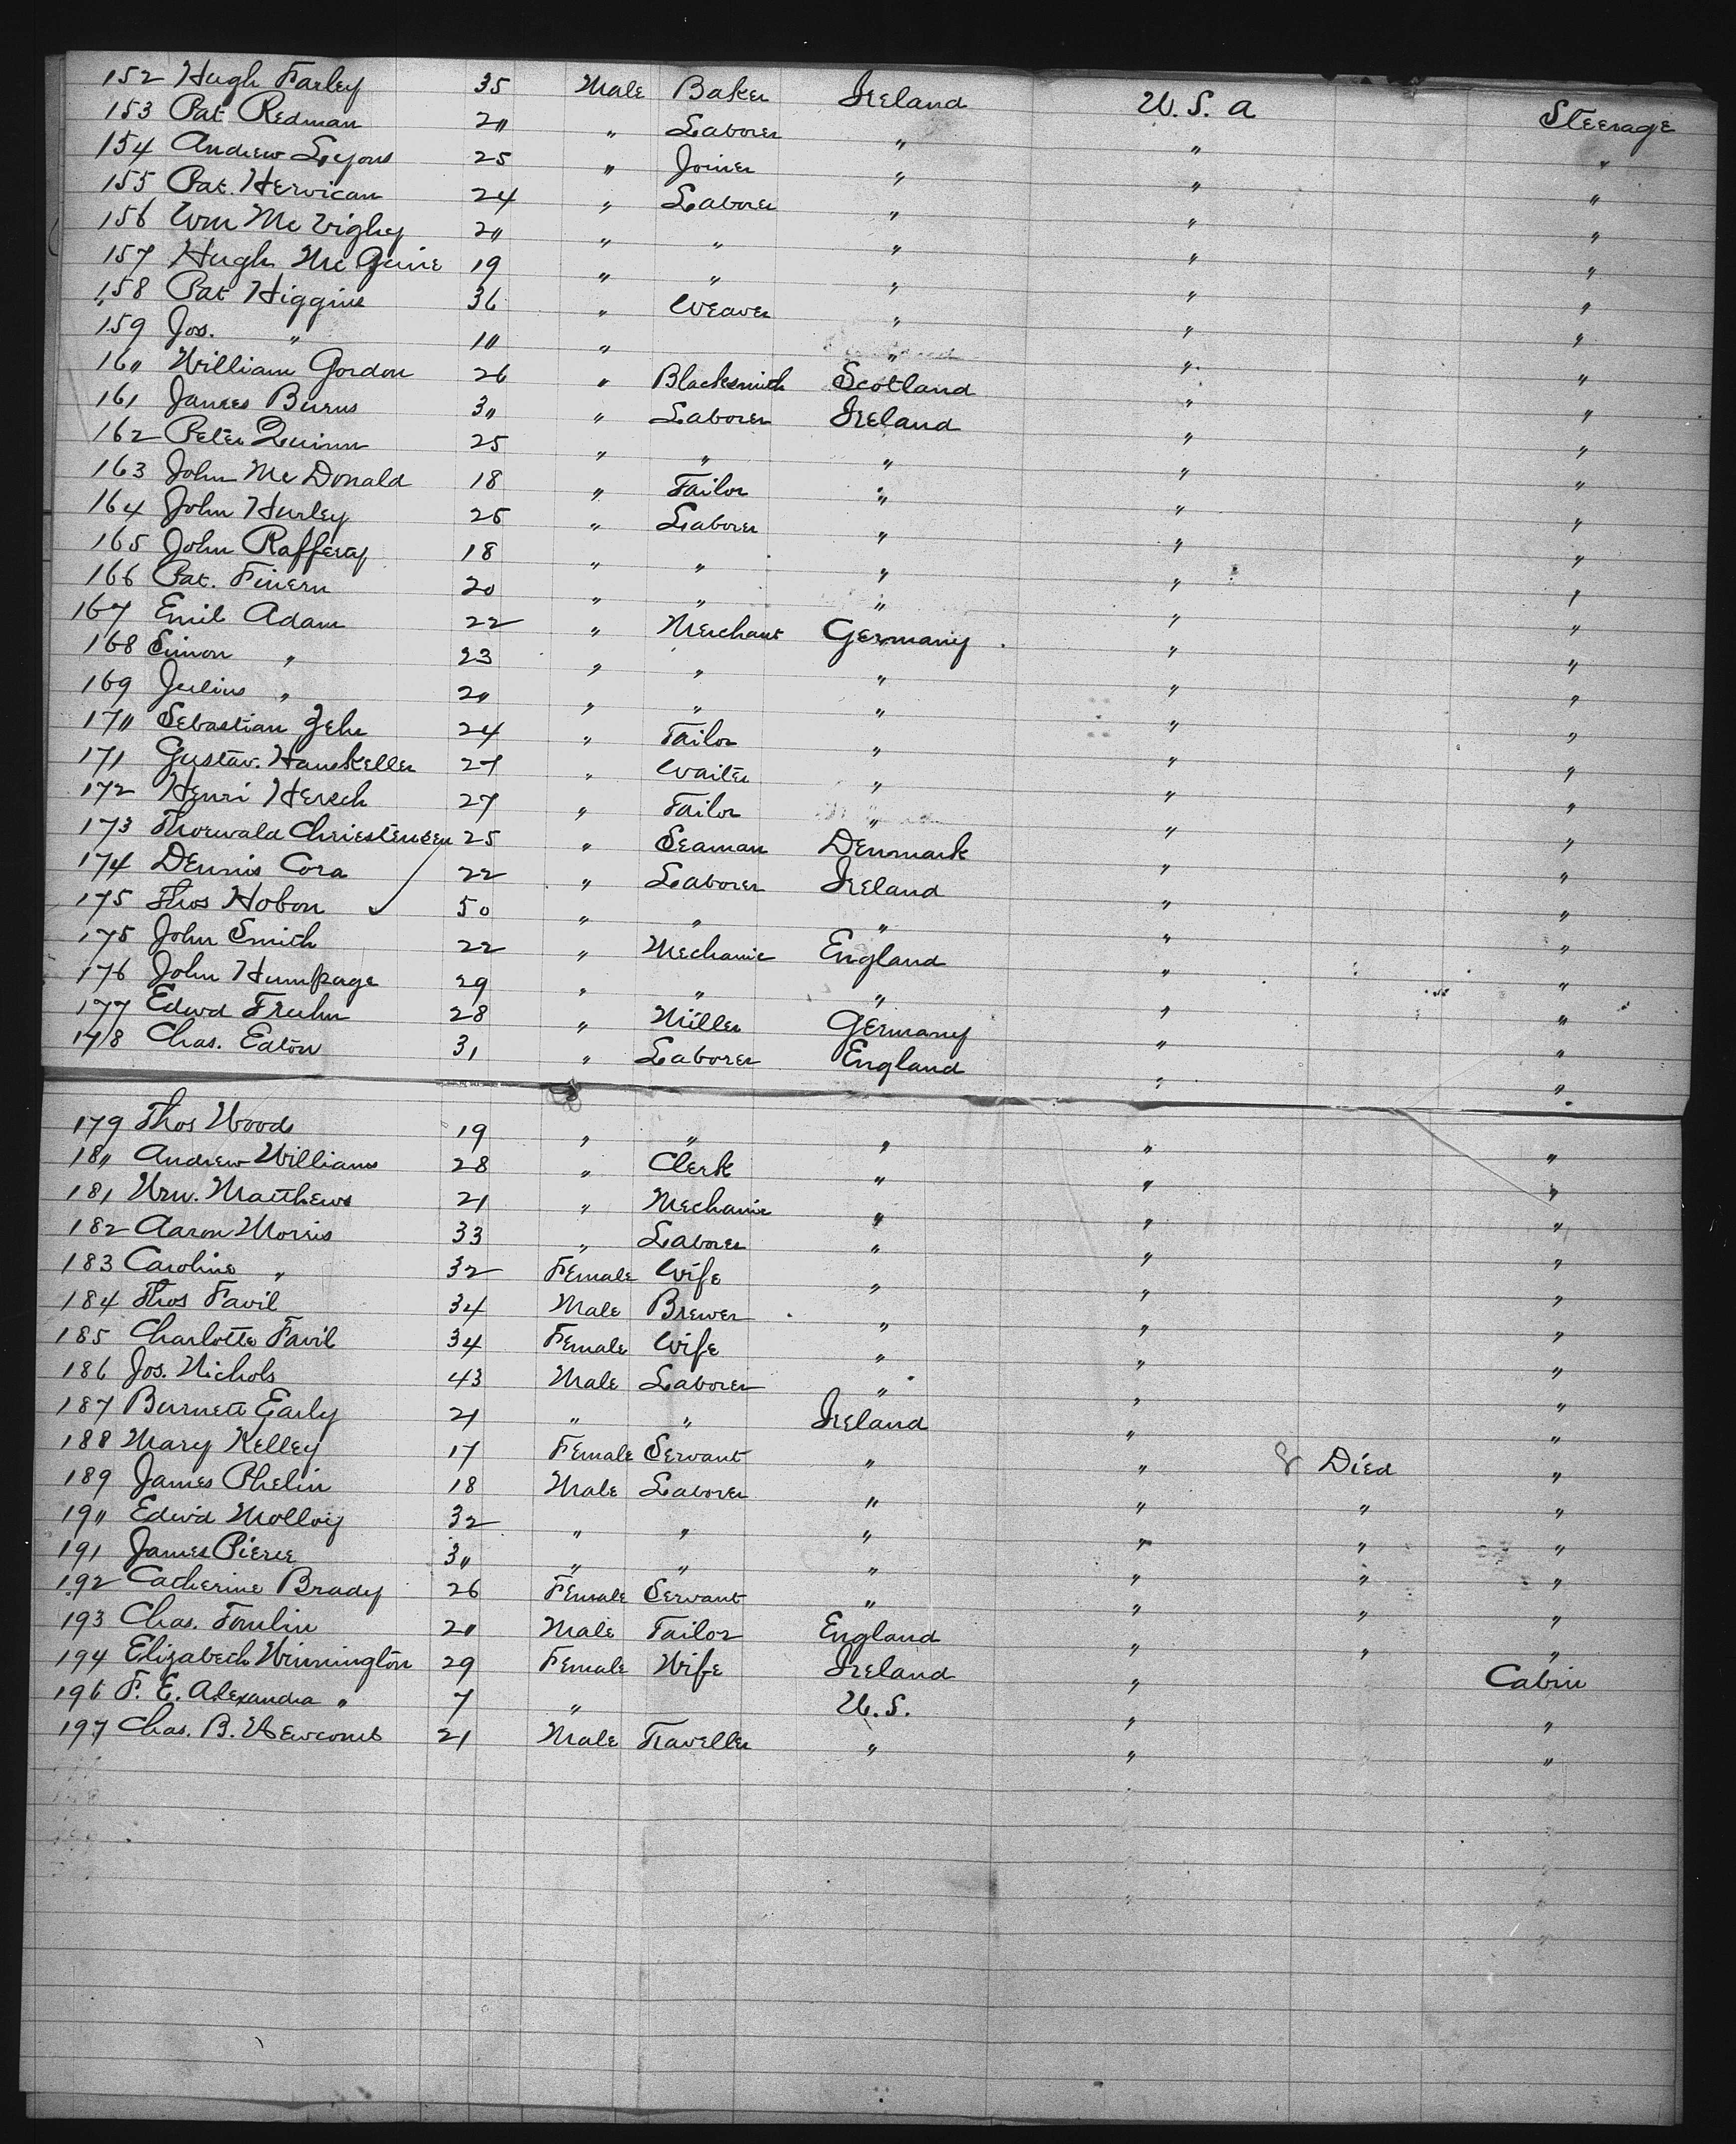 152 Hugh Farley 35 Male Baker Ireland U.S.A Steerage
153 Pat Redman 2" " Laborer " " "
154 Andrew Lyons 25 " Joiner " " "
155 Pat. Hervican 24 " Laborer " " "
156 Wm Mc Vighy 2" " " " " "
157 Hugh Mc Guire 19 " " " " "
158 Pat Higgins 36 " Weaver " " "
159 Jos. " 1" " " " "
16" William Gordon 26 " Blacksmith Scotland " "
161 James Burns 3" " Laborer Ireland " "
162 Peter Quinn 25 " " " " "
163 John Mc Donald 18 " Tailor " " "
164 John Hurley 25 " Laborer " " "
165 John Rafferty 18 " " " " "
166 Pat. Finern 20 " " " " "
167 Emil Adam 22 " Merchant Germany " "
168 Simon " 23 " " " " "
169 Julius " 2" " " " " "
17" Sebastian Zehr 24 " Tailor " " "
171 Gustav. Hauskeller 27 " Waiter " " "
172 Henri Hersch 27 " Tailor " " "
173 Thorwald Chriestensen 25 " Seaman Denmark " "
174 Dennis Cora 22 " Laborer Ireland " "
175 Thos Hobon 50 " " " " "
175 John Smith 22 " Mechanic England " "
176 John Humpage 29 " " " " "
177 Edwd Fruhn 28 " Miller Germany " "
178 Chas. Eaton 31 " Laborer England " "
179 Thos Woods 19 " " " " "
18" Andrew Williams 28 " Clerk " " "
181 Wm. Matthews 21 " Mechanic " " "
182 Aaron Morris 33 " Laborer " " "
183 Caroline " 32 Female Wife " " "
184 Thos Favil 34 Male Brewer " " "
185 Charlotte Favil 34 Female Wife " " "
186 Jos. Nichols 43 Male Laborer " " "
187 Burnett Early 21 " " Ireland " "
188 Mary Kelley 17 Female Servant " " Died "
189 James Phelin 18 Male Laborer " " " "
19" Edwd Molloy 32 " " " " " "
191 James Pierce 3" " " " " " "
192 Catherine Brady 26 Female Servant " " " "
193 Chas. Tomlin 2" Male Tailor England " " "
194 Elizabeth Winnington 29 Female Wife Ireland " Cabin
196 F. E. Alexandra " 7 " U.S. " "
197 Chas. B. Newcomb 21 Male Traveller " " "